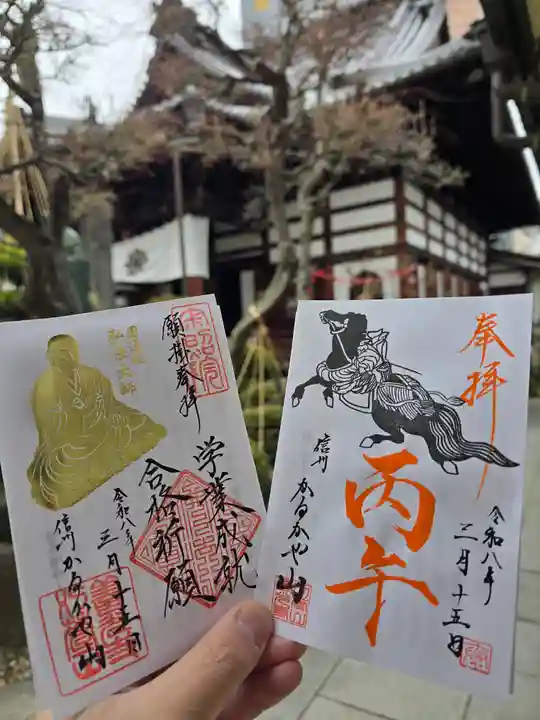 奉拝
令和八年
三月十五日
丙午
信州
かるかや山
願掛奉拝
学業成就
合格祈願
弘法大師
令和八年
三月十五日
信州かるかや山